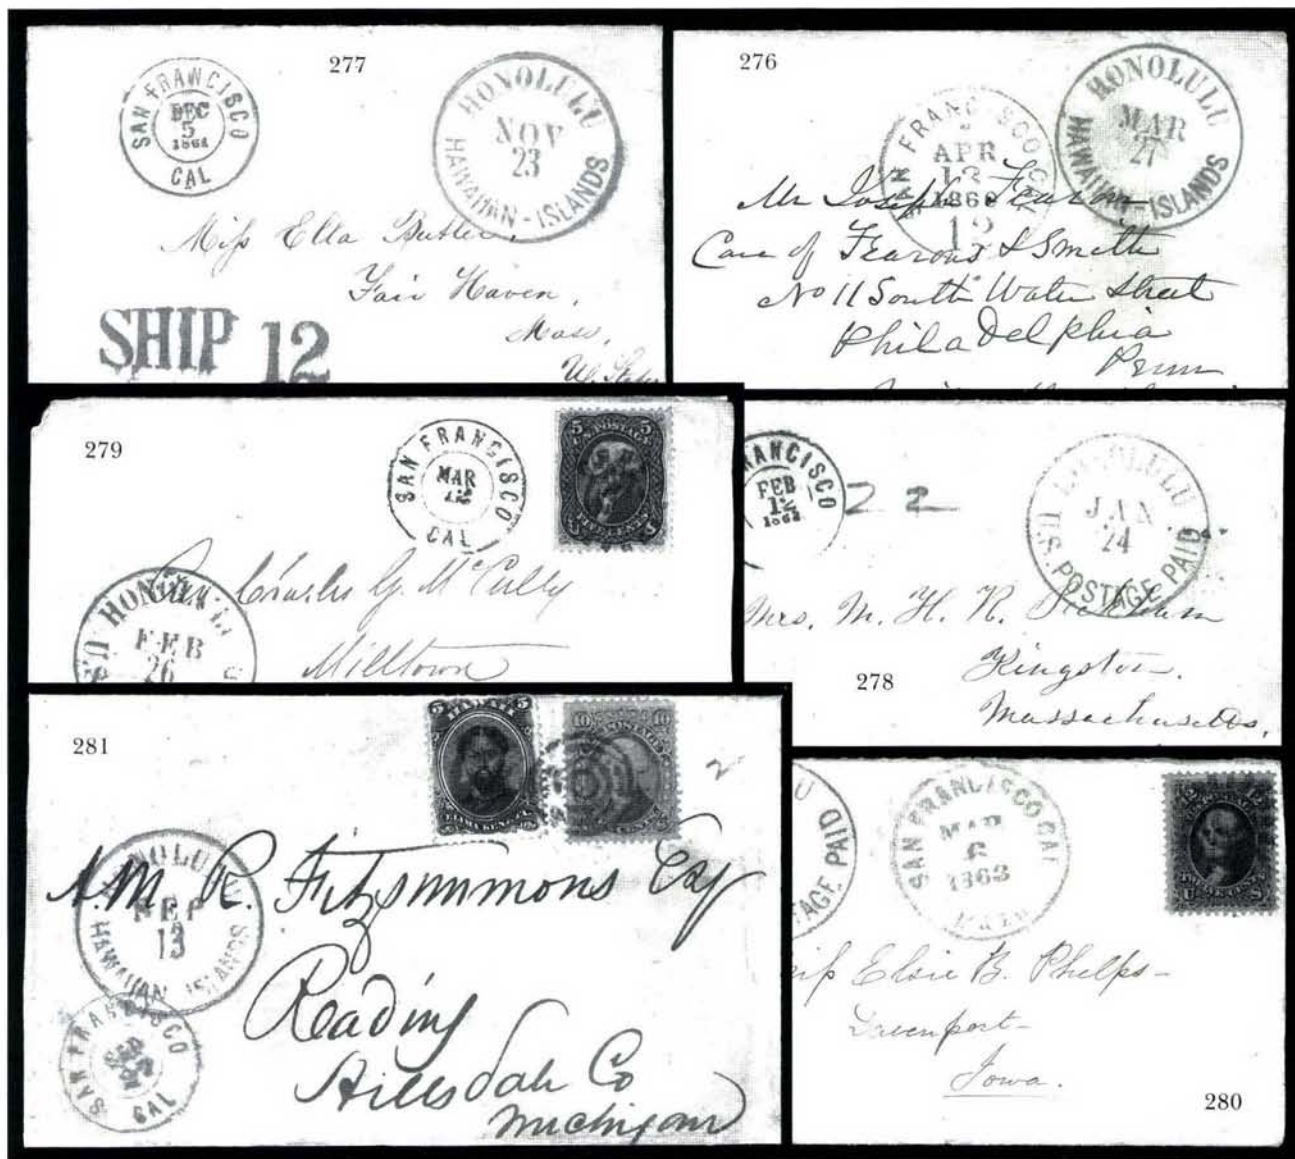 277
SAN FRANCISCO
DEC
5
1861
CAL
HONOLULU
NOV
23
HAWAIIAN-ISLANDS
Miss Ella Butler,
Fair Haven,
Mass,
SHIP 12
276
SAN FRANCISCO CAL
APR
13
186
12
HONOLULU
MAR
27
HAWAIIAN-ISLANDS
Mr Joseph Fearon
Care of Fearons & Smith
No 11 South Water Street
Philadelphia
Penn
279
SAN FRANCISCO
MAR
12
CAL
5 5
U.S. POSTAGE
FIVE CENTS
HONOLULU
U.S.
FEB
26
Charles G. McCully
Milltown
RANCISCO
FEB
12
186
22
HONOLULU
JAN
24
U.S. POSTAGE PAID
Mrs. M. H. R.
Kingston.
Massachusetts,
278
281
5 HAWAII 5
10 10
U.S. POSTAGE
HONOLULU
SEP
13
HAWAIIAN ISLANDS
SAN FRANCISCO
CAL
R. Fitzsimmons Esq
Reading
Hillsdale Co
Michigan
U
AGE PAID
SAN FRANCISCO CAL
MAR
6
1868
12 12
U S
Elsie B. Phelps-
Davenport-
Iowa.
280